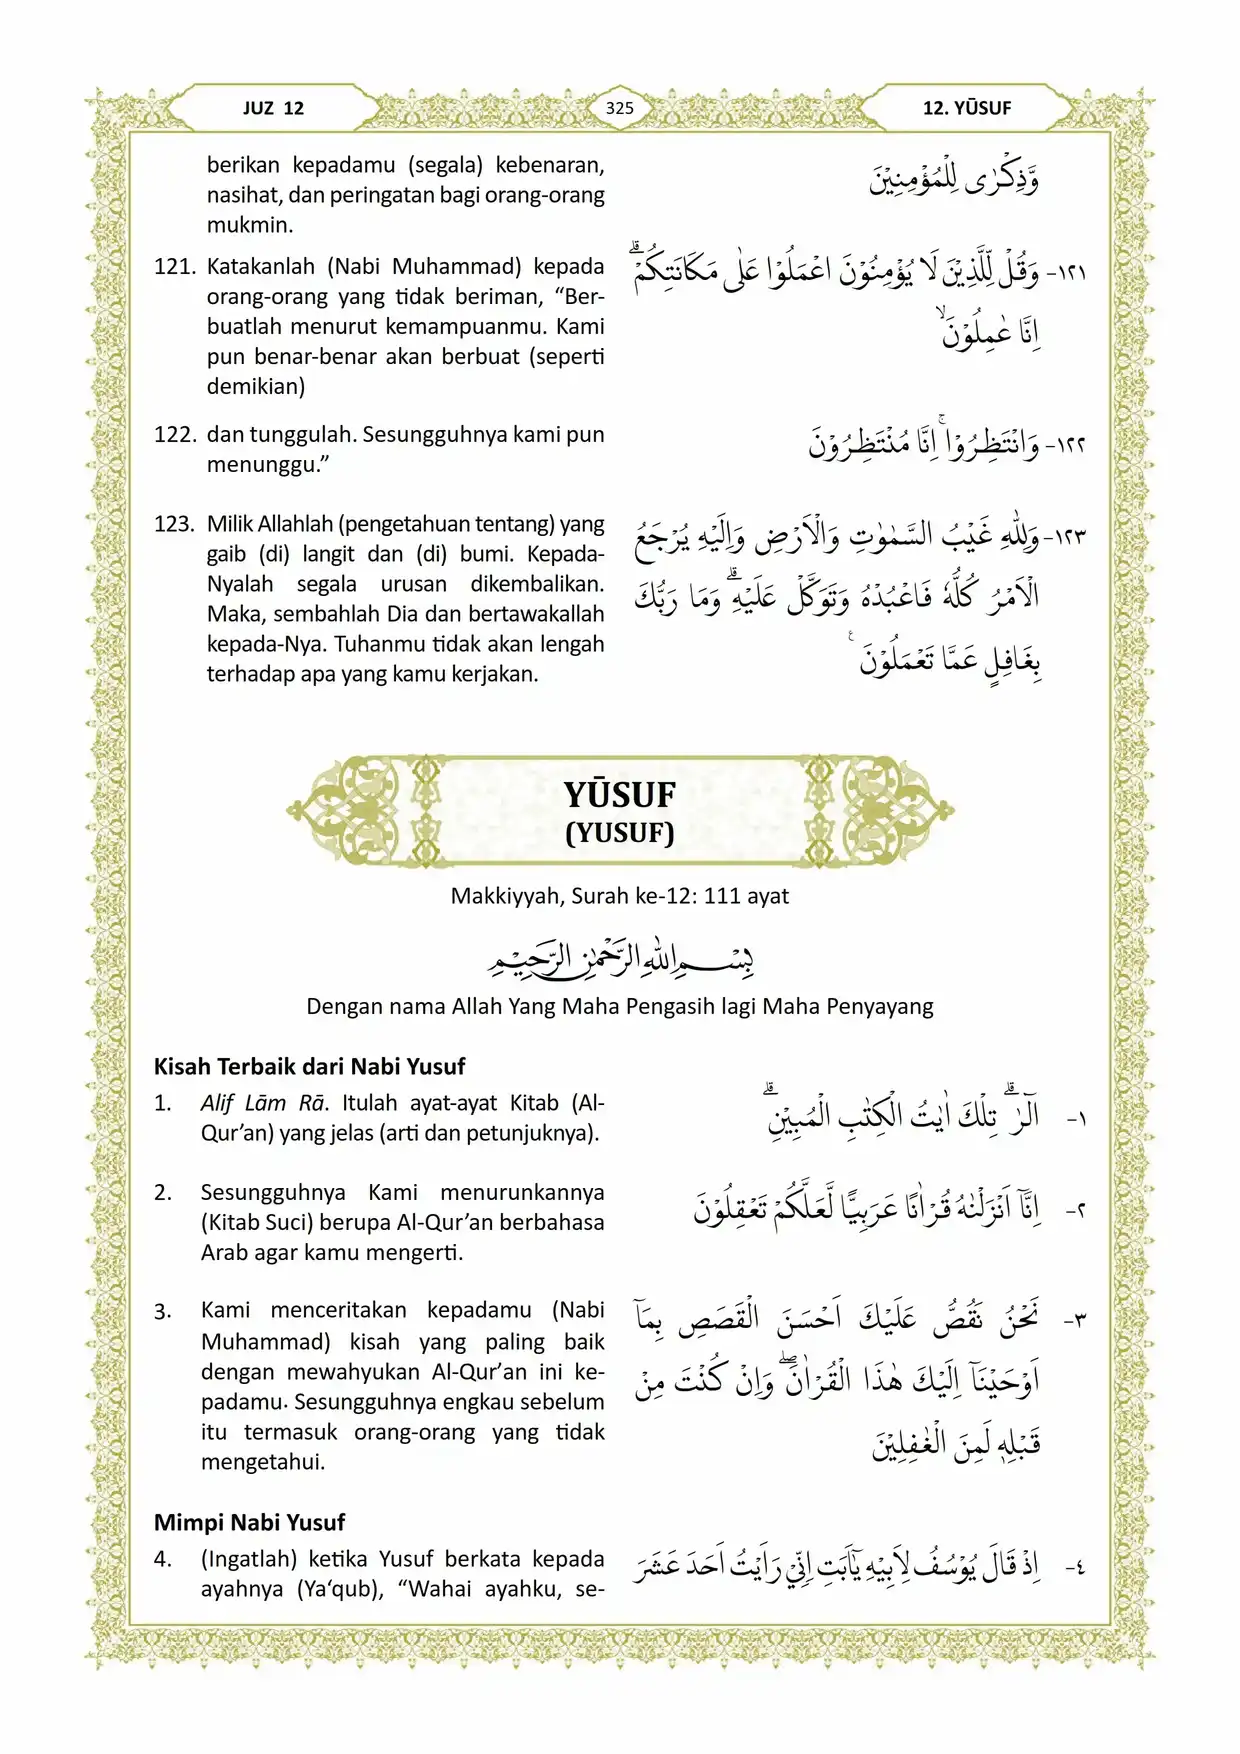 JUZ 12
325
12. YŪSUF
berikan kepadamu (segala) kebenaran,
nasihat, dan peringatan bagi orang-orang
mukmin.
وَّذِكْرٰى لِلْمُؤْمِنِيْنَ
121. Katakanlah (Nabi Muhammad) kepada
orang-orang yang tidak beriman, “Ber-
buatlah menurut kemampuanmu. Kami
pun benar-benar akan berbuat (seperti
demikian)
١٢١- وَقُلْ لِّلَّذِيْنَ لَا يُؤْمِنُوْنَ اعْمَلُوْا عَلٰى مَكَانَتِكُمْۗ
اِنَّا عٰمِلُوْنَۙ
122. dan tunggulah. Sesungguhnya kami pun
menunggu.”
١٢٢- وَانْتَظِرُوْاۚ اِنَّا مُنْتَظِرُوْنَ
123. Milik Allahlah (pengetahuan tentang) yang
gaib (di) langit dan (di) bumi. Kepada-
Nyalah segala urusan dikembalikan.
Maka, sembahlah Dia dan bertawakallah
kepada-Nya. Tuhanmu tidak akan lengah
terhadap apa yang kamu kerjakan.
١٢٣- وَلِلّٰهِ غَيْبُ السَّمٰوٰتِ وَالْاَرْضِ وَاِلَيْهِ يُرْجَعُ
الْاَمْرُ كُلُّهٗ فَاعْبُدْهُ وَتَوَكَّلْ عَلَيْهِۗ وَمَا رَبُّكَ
بِغَافِلٍ عَمَّا تَعْمَلُوْنَ ࣖ
YŪSUF
(YUSUF)
Makkiyyah, Surah ke-12: 111 ayat
بِسْمِ اللّٰهِ الرَّحْمٰنِ الرَّحِيْمِ
Dengan nama Allah Yang Maha Pengasih lagi Maha Penyayang
Kisah Terbaik dari Nabi Yusuf
1. Alif Lām Rā. Itulah ayat-ayat Kitab (Al-
Qur’an) yang jelas (arti dan petunjuknya).
١- الۤرٰۗ تِلْكَ اٰيٰتُ الْكِتٰبِ الْمُبِيْنِۗ
2. Sesungguhnya Kami menurunkannya
(Kitab Suci) berupa Al-Qur’an berbahasa
Arab agar kamu mengerti.
٢- اِنَّآ اَنْزَلْنٰهُ قُرْاٰنًا عَرَبِيًّا لَّعَلَّكُمْ تَعْقِلُوْنَ
3. Kami menceritakan kepadamu (Nabi
Muhammad) kisah yang paling baik
dengan mewahyukan Al-Qur’an ini ke-
padamu. Sesungguhnya engkau sebelum
itu termasuk orang-orang yang tidak
mengetahui.
٣- نَحْنُ نَقُصُّ عَلَيْكَ اَحْسَنَ الْقَصَصِ بِمَآ
اَوْحَيْنَآ اِلَيْكَ هٰذَا الْقُرْاٰنَۖ وَاِنْ كُنْتَ مِنْ
قَبْلِهٖ لَمِنَ الْغٰفِلِيْنَ
Mimpi Nabi Yusuf
4. (Ingatlah) ketika Yusuf berkata kepada
ayahnya (Ya‘qub), “Wahai ayahku, se-
٤- اِذْ قَالَ يُوْسُفُ لِاَبِيْهِ يٰٓاَبَتِ اِنِّيْ رَاَيْتُ اَحَدَ عَشَرَ